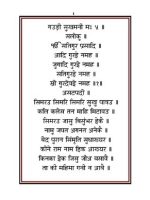 गउड़ी सुखमनी मः ५ ॥
सलोकु ॥
ੴ सतिगुर प्रसादि ॥
आदि गुरए नमह ॥
जुगादि गुरए नमह ॥
सतिगुरए नमह ॥
स्री गुरदेवए नमह ॥१॥
असटपदी ॥
सिमरउ सिमरि सिमरि सुखु पावउ ॥
कलि कलेस तन माहि मिटावउ ॥
सिमरउ जासु बिसुंभर एकै ॥
नामु जपत अगनत अनेकै ॥
बेद पुरान सिंम्रिति सुधाख्यर ॥
कीने राम नाम इक आख्यर ॥
किनका एक जिसु जीअ बसावै ॥
ता की महिमा गनी न आवै ॥